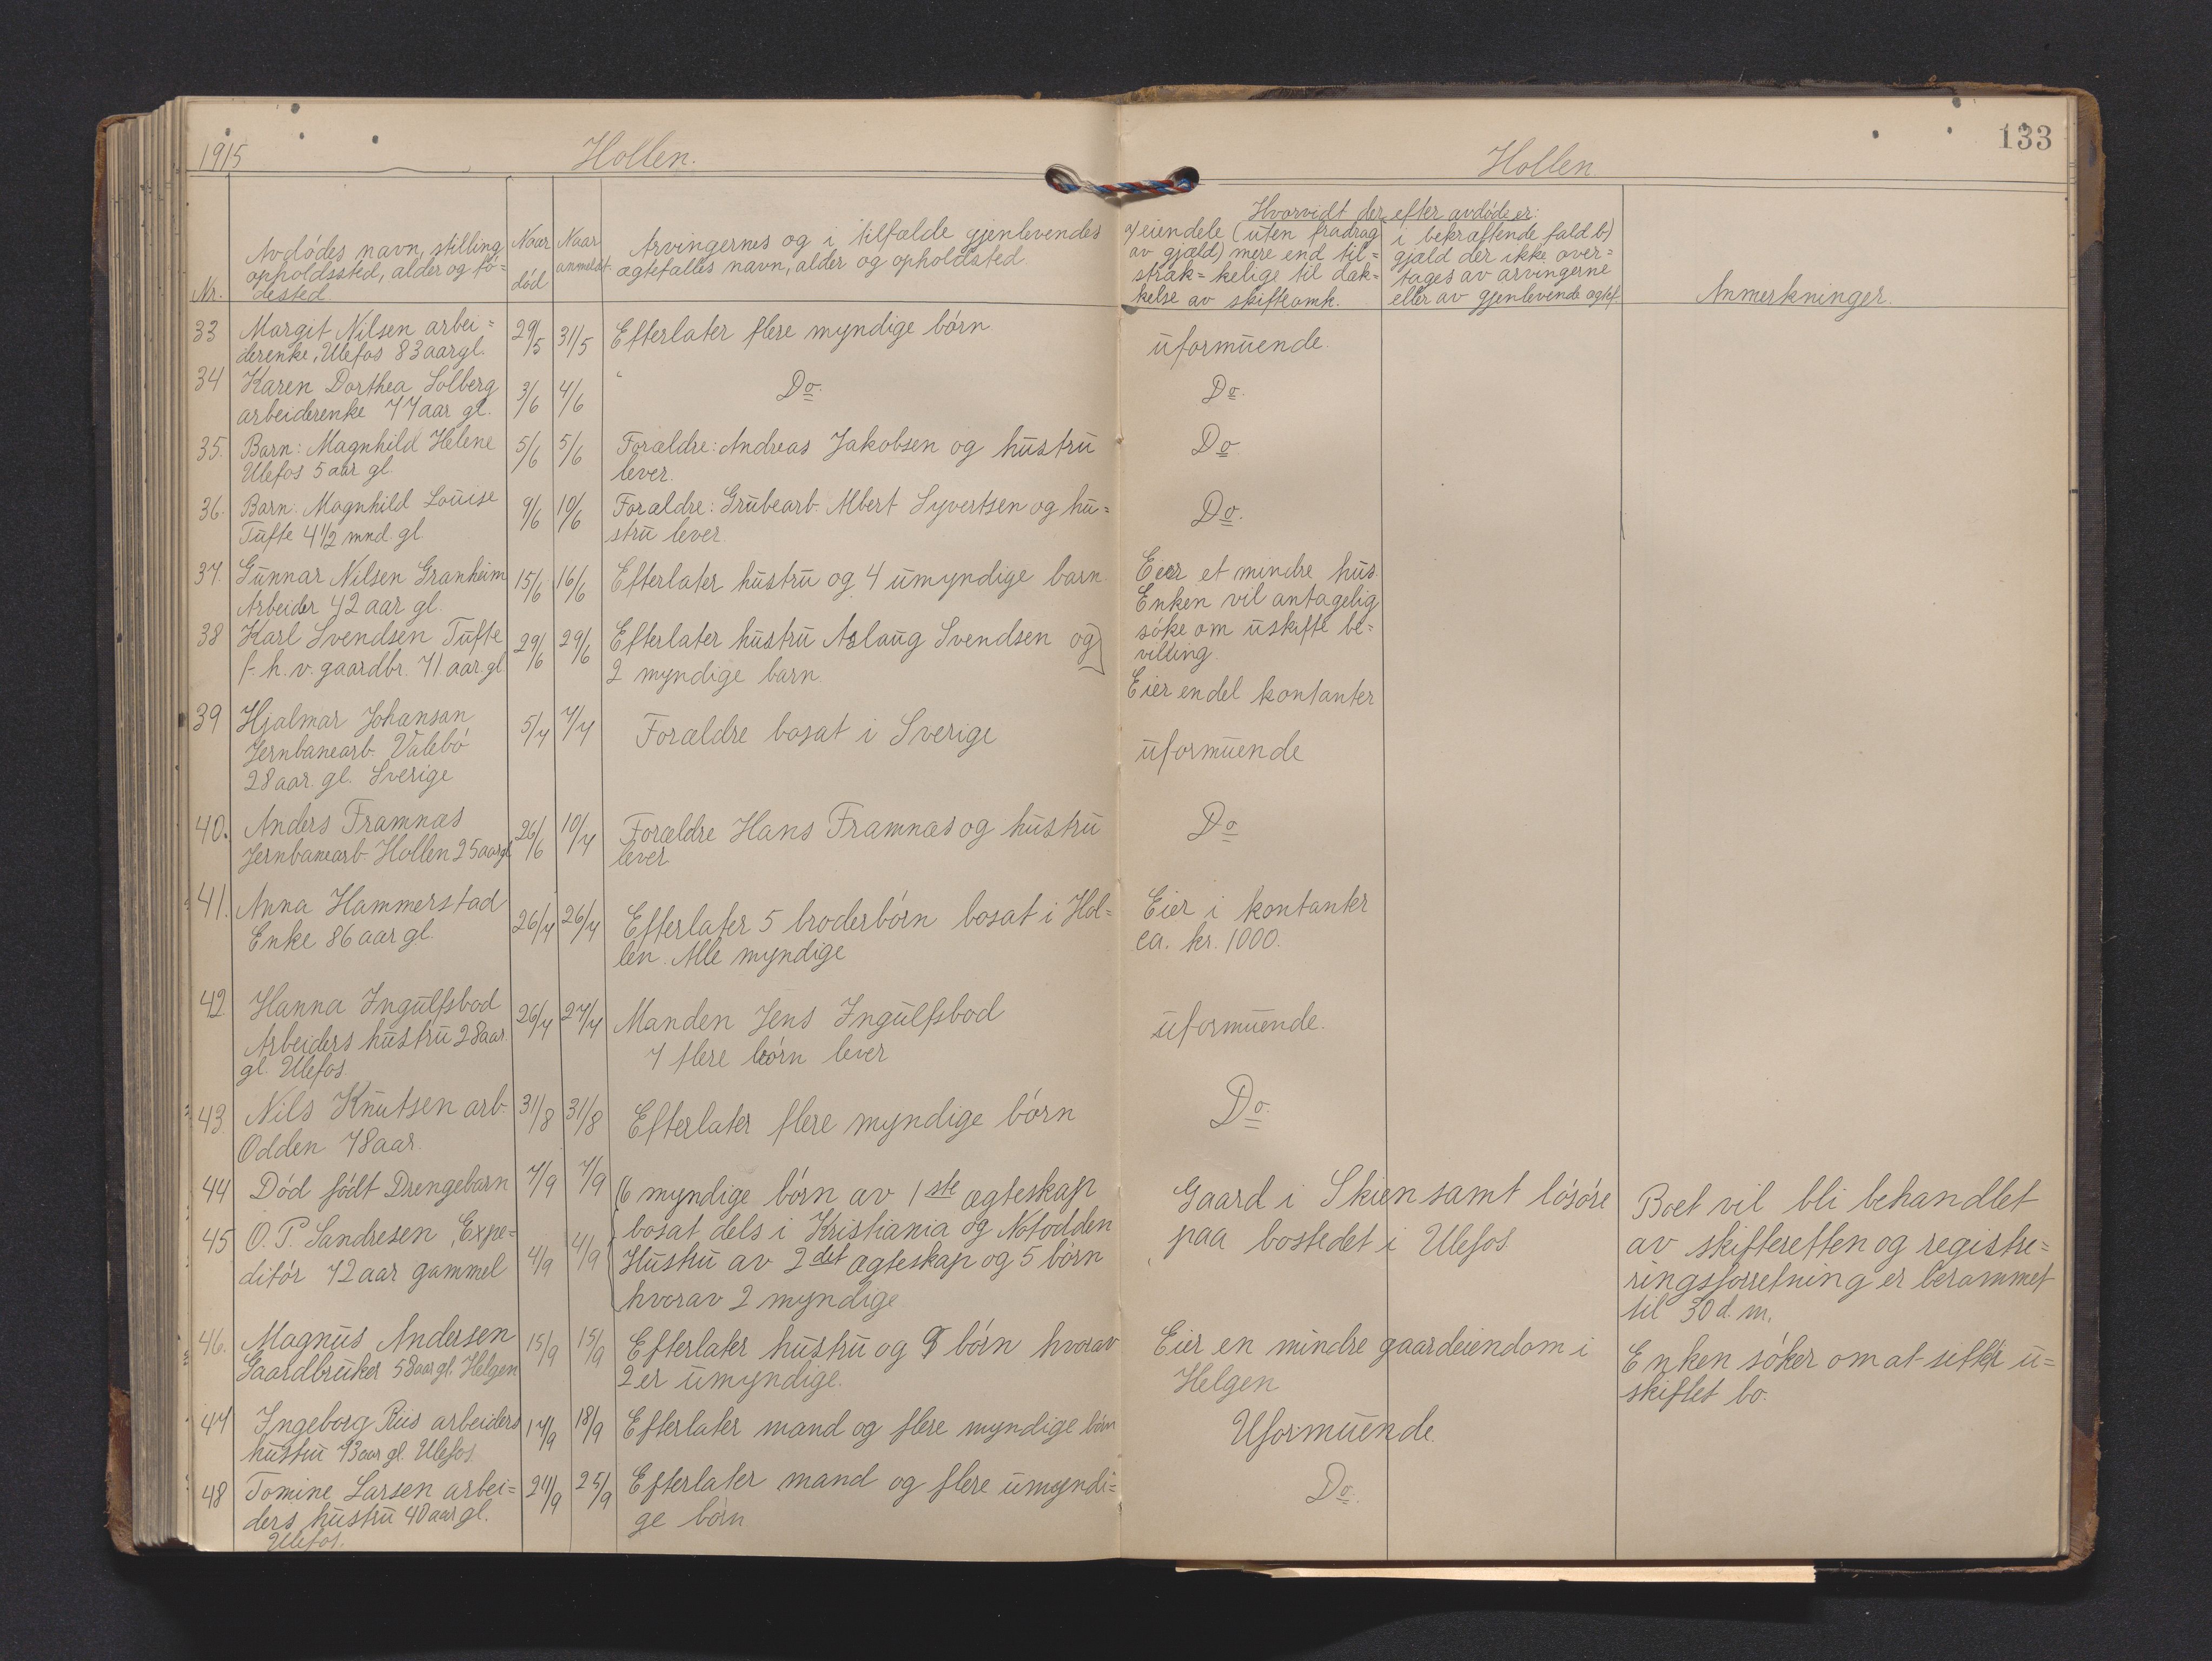 1915 Hollen.
Hollen. 133
Nr.
Avdödes navn, stilling
opholdssted, alder og fö=
dested.
Naar
död
Naar
anmeldt.
Arvingernes og i tilfælde gjenlevendes
ægtefælles navn, alder og opholdsted
Hvorvidt der efter avdöde er:
a) eiendele (uten fradrag
av gjæld) mere end til=
stræk=kelige til dæk=
kelse av skifteomk.
i bekræftende fald b)
gjæld der ikke over=
tages av arvingerne
eller av gjenlevende ægtef.
Anmerkninger.
33 Margit Nilsen arbei= 29/5 31/5 Efterlater flere myndige börn uformuende.
derenke, Ulefos 83 aar gl.
34 Karen Dorthea Solberg 3/6 4/6 " Do. Do.
arbeiderenke 77 aar gl.
35. Barn: Magnhild Helene 5/6 5/6 Forældre: Andreas Jakobsen og hustru Do
Ulefos 5 aar gl. lever.
36. Barn: Magnhild Louise 9/6 10/6 Forældre: Grubearb. Albert Syvertsen og hu= Do.
Tufte 4 1/2 mnd. gl stru lever.
37. Gunnar Nilsen Granheim 15/6 16/6 Efterlater hustru og 4 umyndige barn. Eier et mindre hus.
Arbeider 42 aar gl. Enken vil antagelig
söke om uskifte be=
villing.
38 Karl Svendsen Tufte 29/6 29/6 Efterlater hustru Aslaug Svendsen og
f. h. v. gaardbr. 71 aar gl 2 myndige barn. Eier endel kontanter
39 Hjalmar Johansan 5/7 7/7 Forældre bosat i Sverige uformuende
Jernbanearb. Valebö
28 aar. gl. Sverige
40. Anders Framnæs 26/6 10/7 Forældre Hans Framnæs og hustru Do
Jernbanearb. Hollen 25 aar gl lever
41. Anna Hammerstad 26/7 26/7 Efterlater 5 broderbörn bosat i Hol= Eier i kontanter
Enke 86 aar gl. len. Alle myndige ca. kr. 1000.
42 Hanna Ingulfsbod 26/7 27/7 Manden Jens Ingulfsbod uformuende.
Arbeiders hustru 28 aar 7 flere börn lever
gl. Ulefos.
43. Nils Knutsen arb. 31/8 31/8 Efterlater flere myndige börn Do.
Odden 78 aar.
44 Död födt Drengebarn 7/9 7/9
45 O. P. Sandresen, Expe= 4/9 4/9
ditör 72 aar gammel
6 myndige börn av 1ste ægteskap
bosat dels i Kristiania og Notodden
Hustru av 2det ægteskap og 5 börn
hvorav 2 myndige
Gaard i Skien samt lösöre
paa bostedet i Ulefos
Boet vil bli behandlet
av skifteretten og registre=
ringsforretning er berammet
til 30 d. m.
46. Magnus Andersen 15/9 15/9 Efterlater hustru og 9 börn hvorav Eier en mindre gaardeiendom i Enken söker om at sitte i u=
Gaardbruker 58 aar gl. Helgen 2 er umyndige. Helgen skiftet bo.
47 Ingeborg Riis arbeiders 17/9 18/9 Efterlater mand og flere myndige börn Uformuende.
hustru 73 aar gl. Ulefos.
48 Tomine Larsen arbei= 24/9 25/9 Efterlater mand og flere umyndi= Do.
ders hustru 40 aar gl. ge börn
Ulefos.